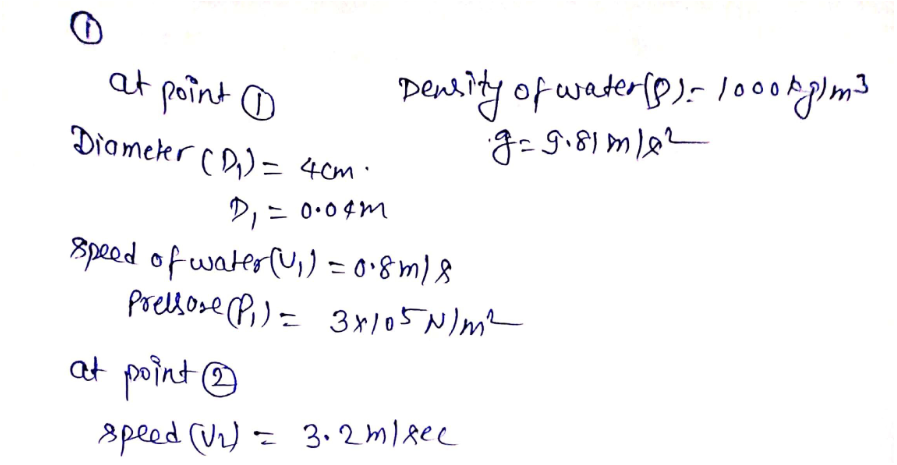 ①
at point ① Density of water(ρ) = 1000 kg/m³
Diameter (D₁) = 4cm. g = 9.81 m/s²
D₁ = 0.04m
speed of water(V₁) = 0.8m/s
Pressure(P₁) = 3x10⁵ N/m²
at point ②
speed (V₂) = 3.2m/sec